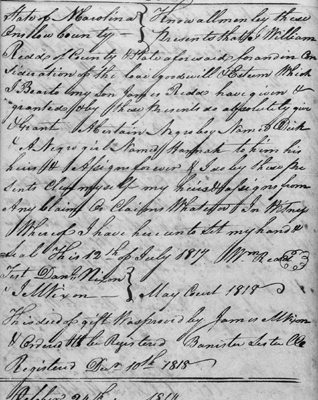 State of N Carolina } Know all men by these
Onslow County — } Presents that I William
Redd of County & State aforesaid for and in Con
sideration of the love good will & Esteem Which
I Bear to my Son Redd have given &
granted & by these Presents do absolutely give
& Grant A Certain Negro boy Named Dick
& A Negro girl Named Hannah to him his
heirs & Assigns forever & I do by these Pre
sents Clear myself my heirs & Assigns from
Any Claim Or Claims Whatsoever In Witness
Whereof I have hereunto Set my hand &
Seal This 12th of July 1817 Wm Redd
Test Danl. Nixon }
J. Mixon — } May Court 1818
This deed of gift Was proved by James Mixon
& Ordered to be Registered Banister Lester Clk
Registered Decr 10th 1818